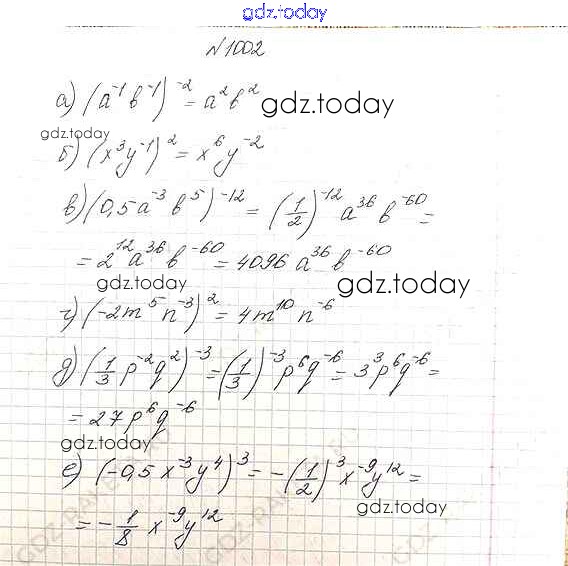 gdz.today
№1002
а) (a⁻¹b⁻¹)⁻² = a²b² gdz.today
gdz.today
б) (x³y⁻¹)² = x⁶y⁻²
в) (0,5a⁻³b⁵)⁻¹² = (1/2)⁻¹² a³⁶ b⁻⁶⁰ =
= 2¹²a³⁶b⁻⁶⁰ = 4096 a³⁶ b⁻⁶⁰
gdz.today gdz.today
г) (-2m⁵n⁻³)² = 4m¹⁰n⁻⁶
д) (1/3 p⁻²q²)⁻³ = (1/3)⁻³ p⁶q⁻⁶ = 3³p⁶q⁻⁶ =
= 27p⁶q⁻⁶
gdz.today
е) (-0,5x⁻³y⁴)³ = -(1/2)³x⁻⁹y¹² =
gdz.today
= -1/8 x⁻⁹y¹²